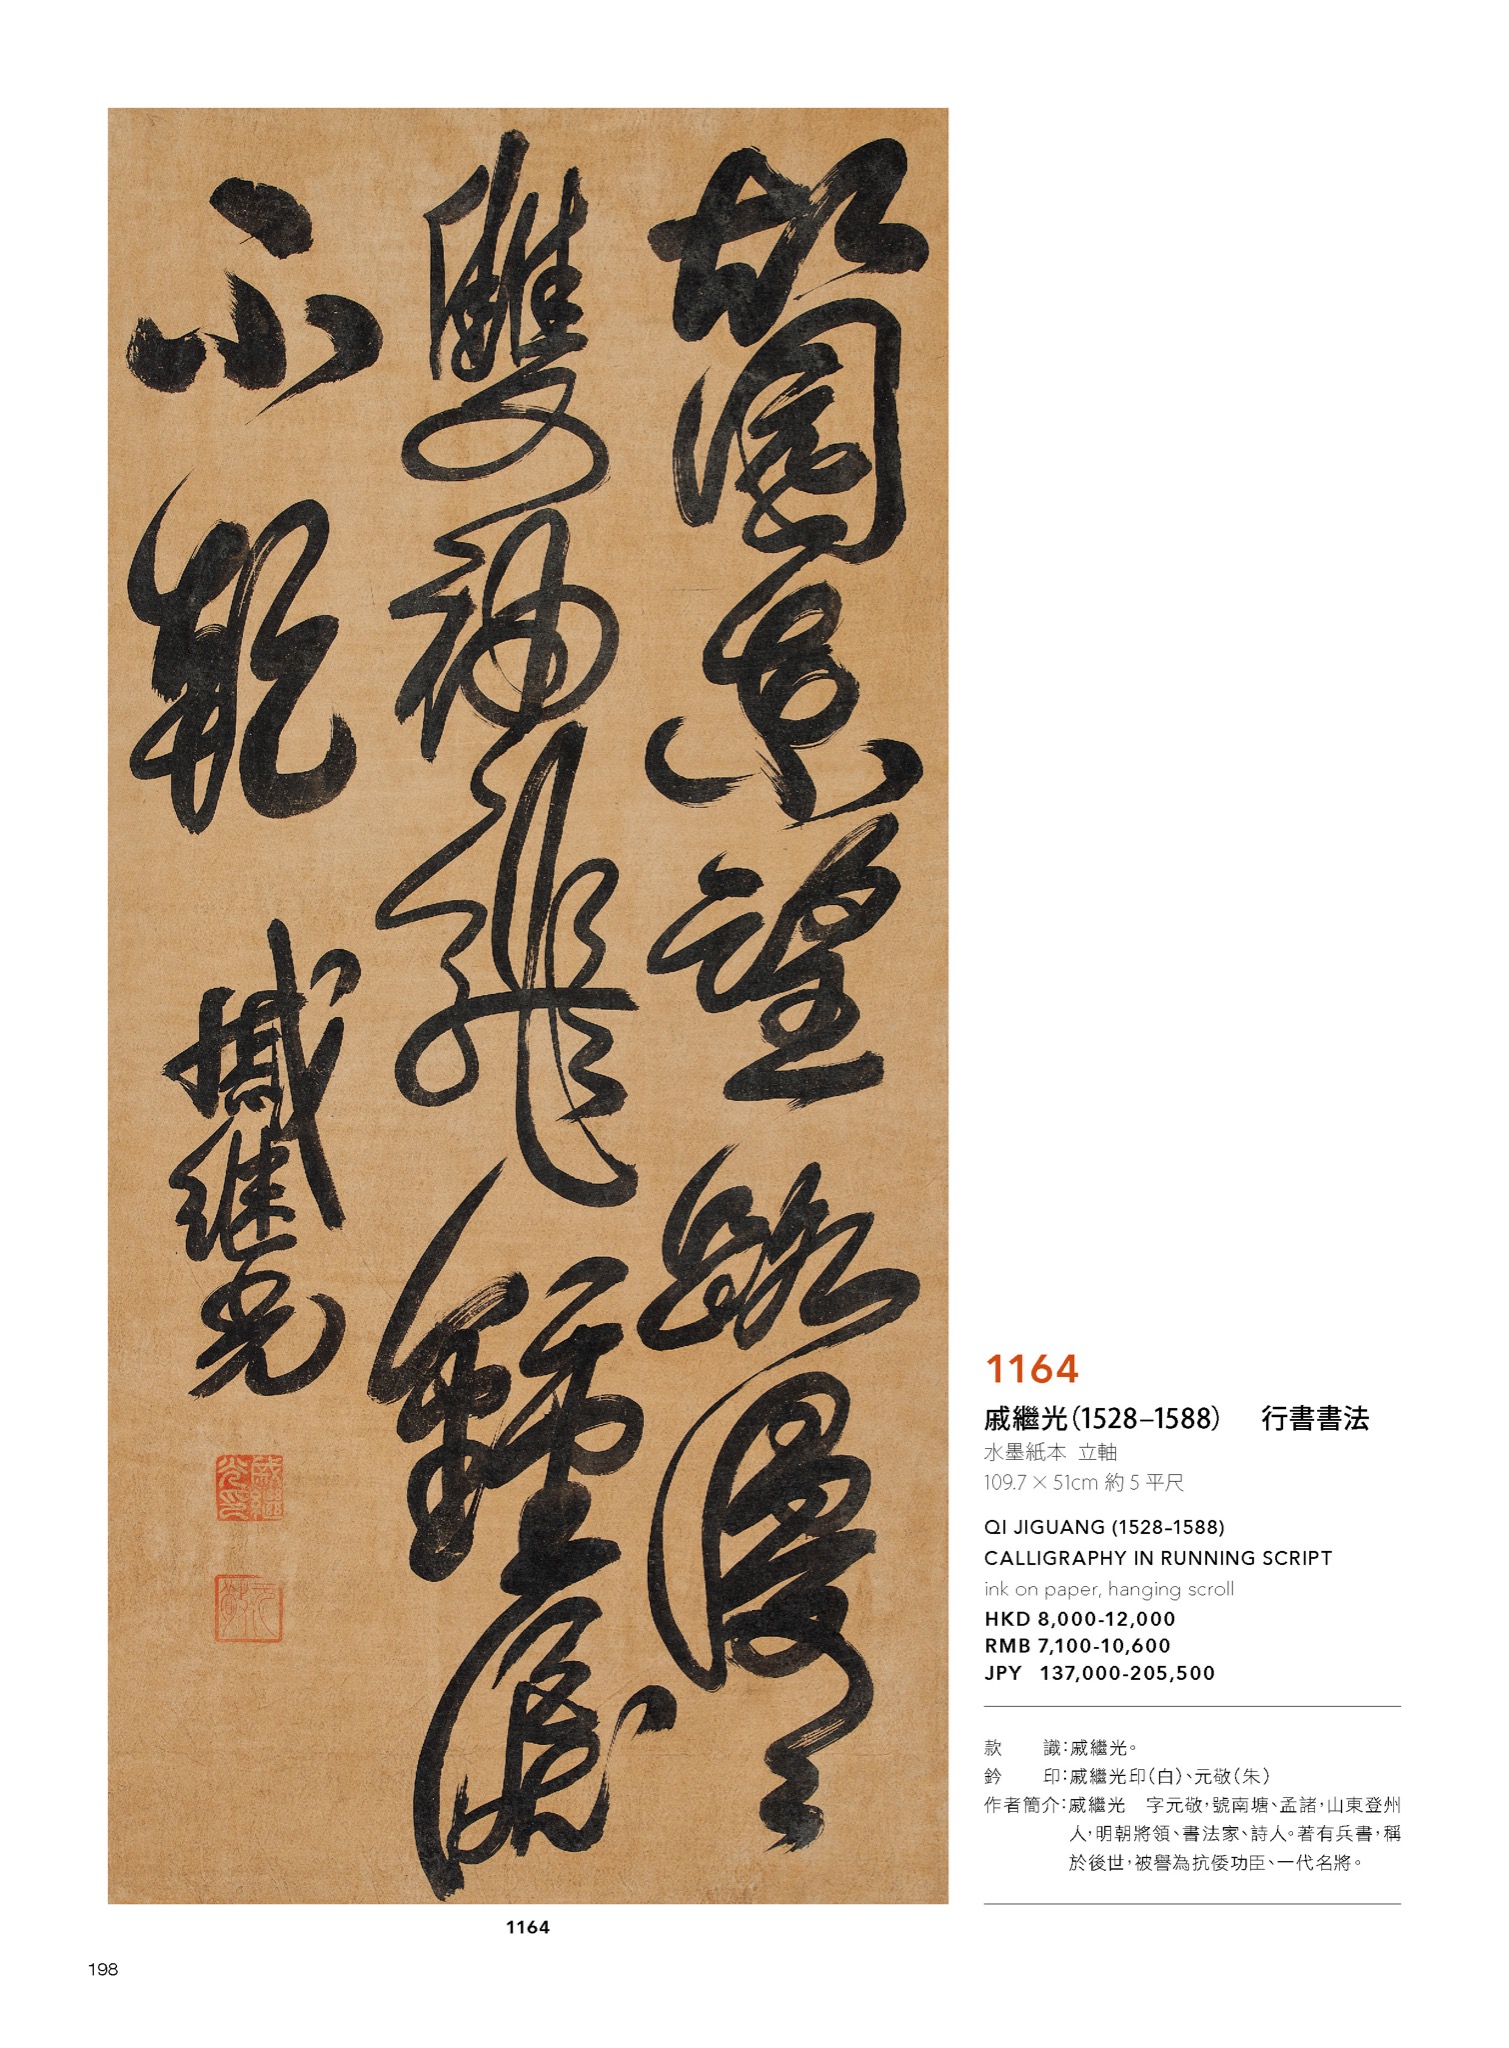 故園東望路漫〻
雙袖龍鍾淚
不乾
戚继光
戚繼光印
元敬
1164
戚繼光（1528–1588）　行書書法
水墨紙本 立軸
109.7 × 51cm 約 5 平尺
QI JIGUANG (1528–1588)
CALLIGRAPHY IN RUNNING SCRIPT
ink on paper, hanging scroll
HKD 8,000-12,000
RMB 7,100-10,600
JPY 137,000-205,500
款　識：戚繼光。
鈐　印：戚繼光印（白）、元敬（朱）
作者簡介：戚繼光　字元敬，號南塘、孟諸，山東登州
人，明朝將領、書法家、詩人。著有兵書，稱
於後世，被譽為抗倭功臣、一代名將。
1164
198